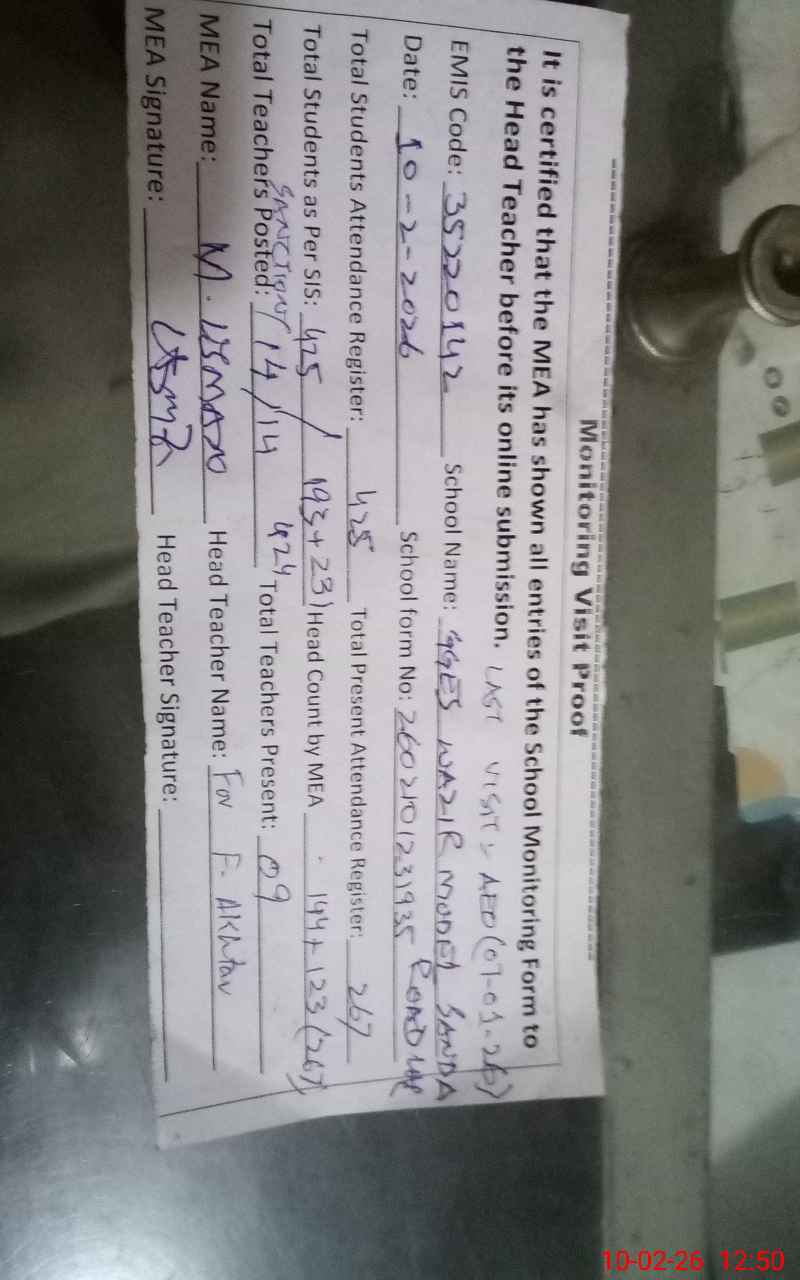 Monitoring Visit Proof
It is certified that the MEA has shown all entries of the School Monitoring Form to
the Head Teacher before its online submission. LAST VISIT: AEO (07-01-26)
EMIS Code: 35220142 School Name: GGES WAZIR MODEL SANDA
ROAD LHR
Date: 10-2-2026 School form No: 2602101231935
Total Students Attendance Register: 425 Total Present Attendance Register: 267
Total Students as Per SIS: 425 / 193+23) Head Count by MEA 144+123 (267)
SANCTION/ 424
Total Teachers Posted: 14/14 Total Teachers Present: 09
MEA Name: M. USMAN Head Teacher Name: For F. Akhtar
MEA Signature: Head Teacher Signature:
10-02-26 12:50